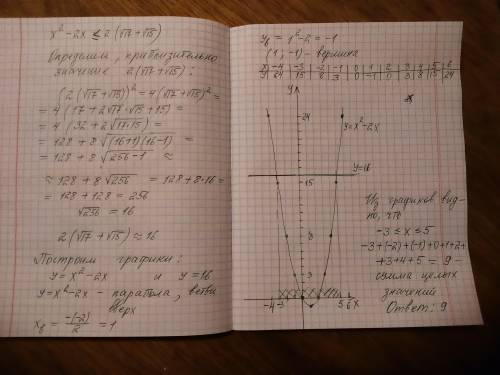 x² - 2x ≤ 2(√17+√15)
Определим, приблизительно
значение 2(√17+√15):
(2(√17+√15))² = 4(√17+√15)² =
= 4(17+2√17·√15+15) =
= 4(32+2√17·15) =
= 128+8√(16+1)(16-1) =
= 128+8√256-1 ≈
≈ 128+8√256 = 128+8·16 =
= 128+128 = 256
√256 = 16
2(√17+√15) ≈ 16
Построим графики:
y=x²-2x и y=16
y=x²-2x - парабола, ветви
вверх
xв = -(-2)/2 = 1
yв = 1²-2 = -1
(1; -1) - вершина
x -4 -3 -2 -1 0 1 2 3 4 5 6
y 24 15 8 3 0 -1 0 3 8 15 24
y
24
y=x²-2x
y=16
15
8
3
-4 -3 5 6 x
Из графиков вид-
но, что
-3 ≤ x ≤ 5
-3+(-2)+(-1)+0+1+2+
+3+4+5 = 9 -
сумма целых
значений
Ответ: 9